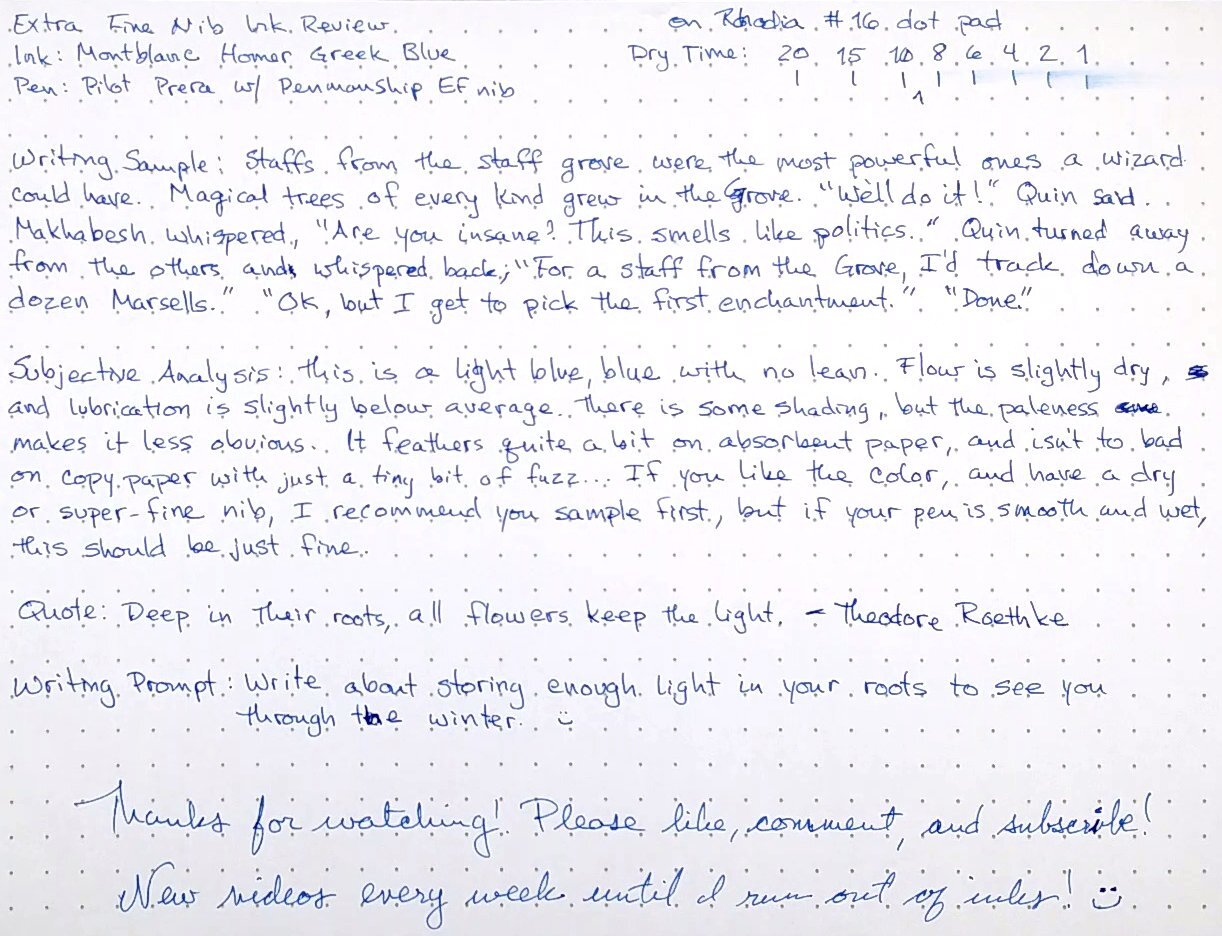 Extra Fine Nib Ink Review on Rhodia #16 dot pad
Ink: Montblanc Homer Greek Blue Dry Time: 20 15 10 8 6 4 2 1
Pen: Pilot Prera w/ Penmanship EF nib
Writing Sample: Staffs from the staff grove were the most powerful ones a wizard
could have. Magical trees of every kind grew in the Grove. "We'll do it!" Quin said.
Makhabesh whispered, "Are you insane? This smells like politics." Quin turned away
from the others and whispered back, "For a staff from the Grove, I'd track down a
dozen Marsells." "OK, but I get to pick the first enchantment." "Done."
Subjective Analysis: This is a light blue, blue with no lean. Flow is slightly dry,
and lubrication is slightly below average. There is some shading, but the paleness
makes it less obvious. It feathers quite a bit on absorbent paper, and isn't to bad
on copy paper with just a tiny bit of fuzz... If you like the color, and have a dry
or super-fine nib, I recommend you sample first, but if your pen is smooth and wet,
this should be just fine.
Quote: Deep in their roots, all flowers keep the light. - Theodore Roethke
Writing Prompt: Write about storing enough light in your roots to see you
through the winter. :)
Thanks for watching! Please like, comment, and subscribe!
New videos every week until I run out of inks! :)